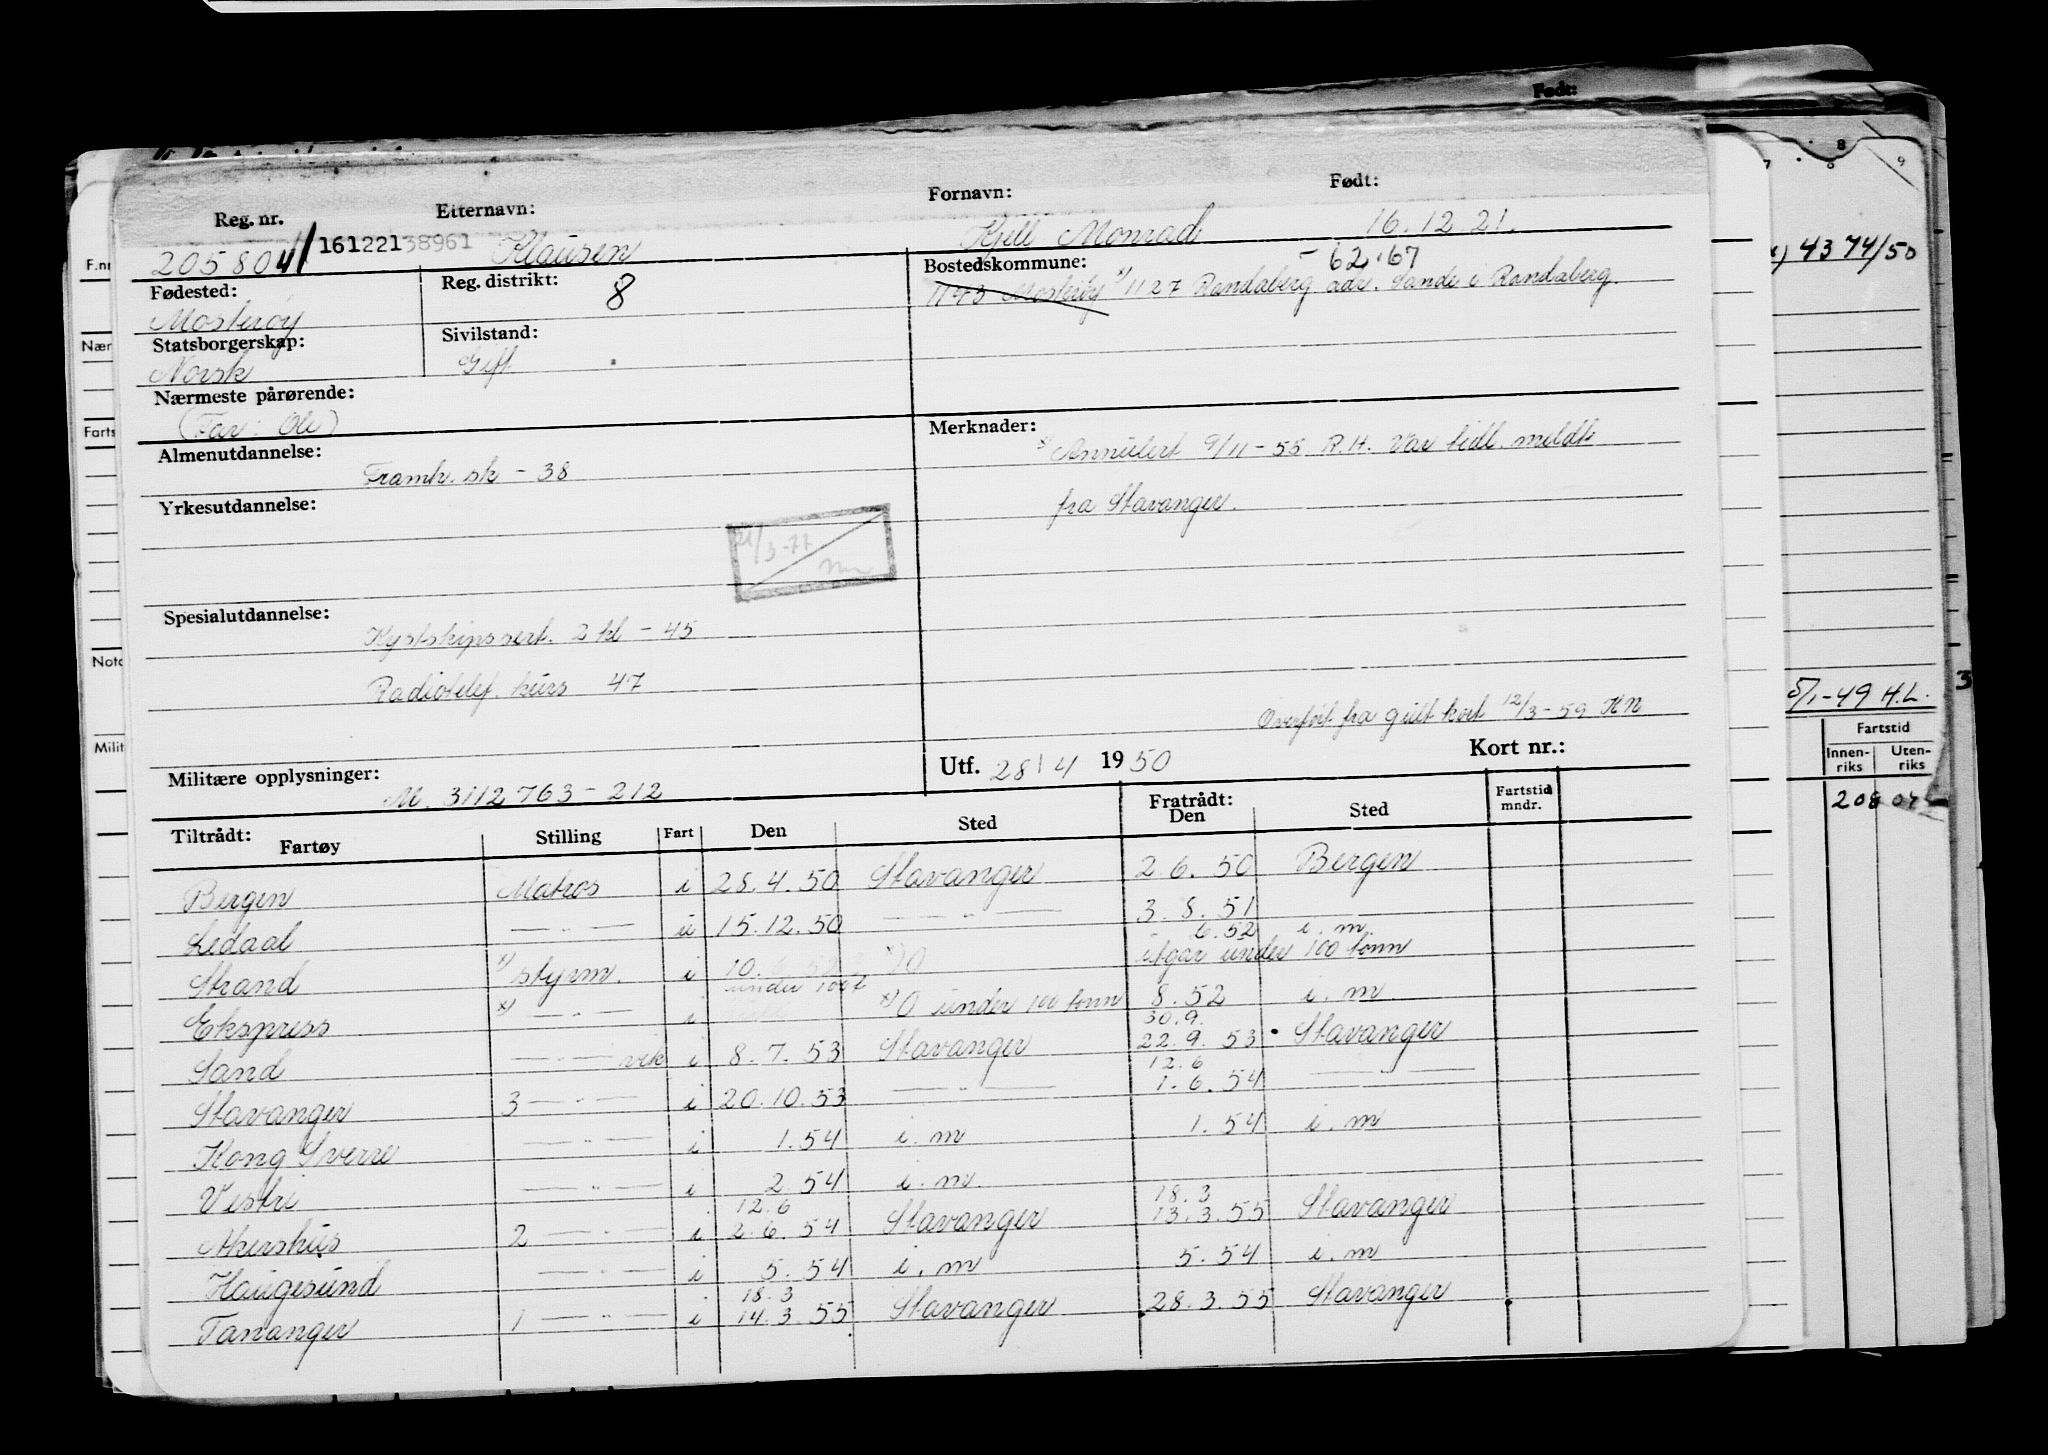 Født:
Reg. nr. Etternavn: Fornavn: Født:
205804 161221 38961 Klausen Kjell Monrad 16.12.21.
Fødested: Reg. distrikt: 8 Bostedskommune: - 62.67
Mosterøy 1143 Mosterøy x) 1127 Randaberg adr. Sande i Randaberg.
Statsborgerskap: Sivilstand:
Norsk Gift
Nærmeste pårørende:
(Far: Ole)
Merknader:
x) Annulert 9/11-55 R.H. Var tidl. meldt
fra Stavanger.
Almenutdannelse:
Framh. sk - 38
Yrkesutdannelse:
21/3-77
Spesialutdannelse:
Kystskipssert. 2 kl - 45
Radiotelef. kurs 47
Overført fra gult kort 12/3-59 KN
Militære opplysninger: Utf. 28/4 1950 Kort nr.:
M. 3112763-212
Tiltrådt: Fratrådt:
Fartøy Stilling Fart Den Sted Den Sted Fartstid mndr.
Bergen Matros i 28.4.50 Stavanger 2.6.50 Bergen
Ledaal — " — u 15.12.50 — " — 3.8.51
6.52 i.m.
Strand x) styrm. i 10. x) O utgår under 100 tonn
under 100t
Ekspress x) — " — i x) O under 100 tonn 8.52 i.m.
30.9.
Sand — " — vik i 8.7.53 Stavanger 22.9.53 Stavanger
12.6
Stavanger 3 — " — i 20.10.53 — " — 1.6.54 — " —
Kong Sverre — " — i 1.54 i.m 1.54 i.m
Vestri — " — i 2.54 i.m.
12.6 18.3
Akershus 2 — " — i 2.6.54 Stavanger 13.3.55 Stavanger
Haugesund — " — i 5.54 i.m 5.54 i.m
18.3
Tananger 1 — " — i 14.3.55 Stavanger 28.3.55 Stavanger
F.nr
Nær
Farts
Nota
Milit
7 8 9
x) 4374/50
5/1-49 H.L. 3
Fartstid
Innen-riks Uten-riks
208